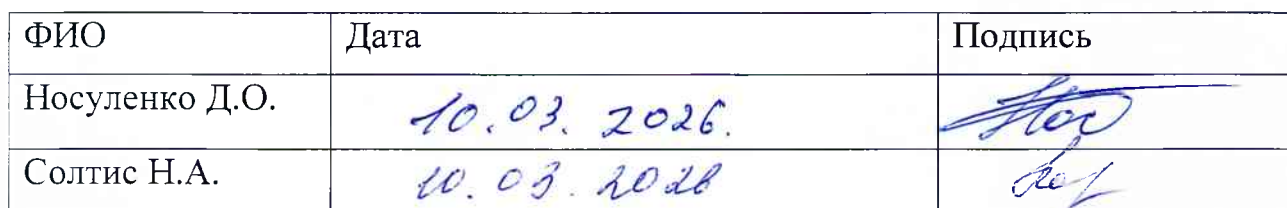 ФИО Дата Подпись
Носуленко Д.О. 10.03.2026.
Солтис Н.А. 10.03.2026